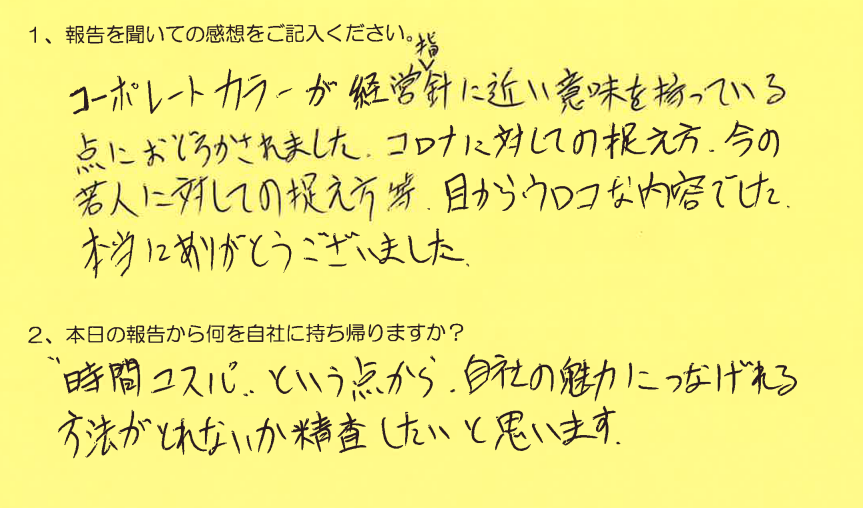 1、報告を聞いての感想をご記入ください。
コーポレートカラーが経営指針に近い意味を持っている
点におどろかされました。コロナに対しての捉え方、今の
若人に対しての捉え方等、目からウロコな内容でした。
本当にありがとうございました。
2、本日の報告から何を自社に持ち帰りますか？
"時間コスパ"という点から、自社の魅力につなげれる
方法がとれないか精査したいと思います。